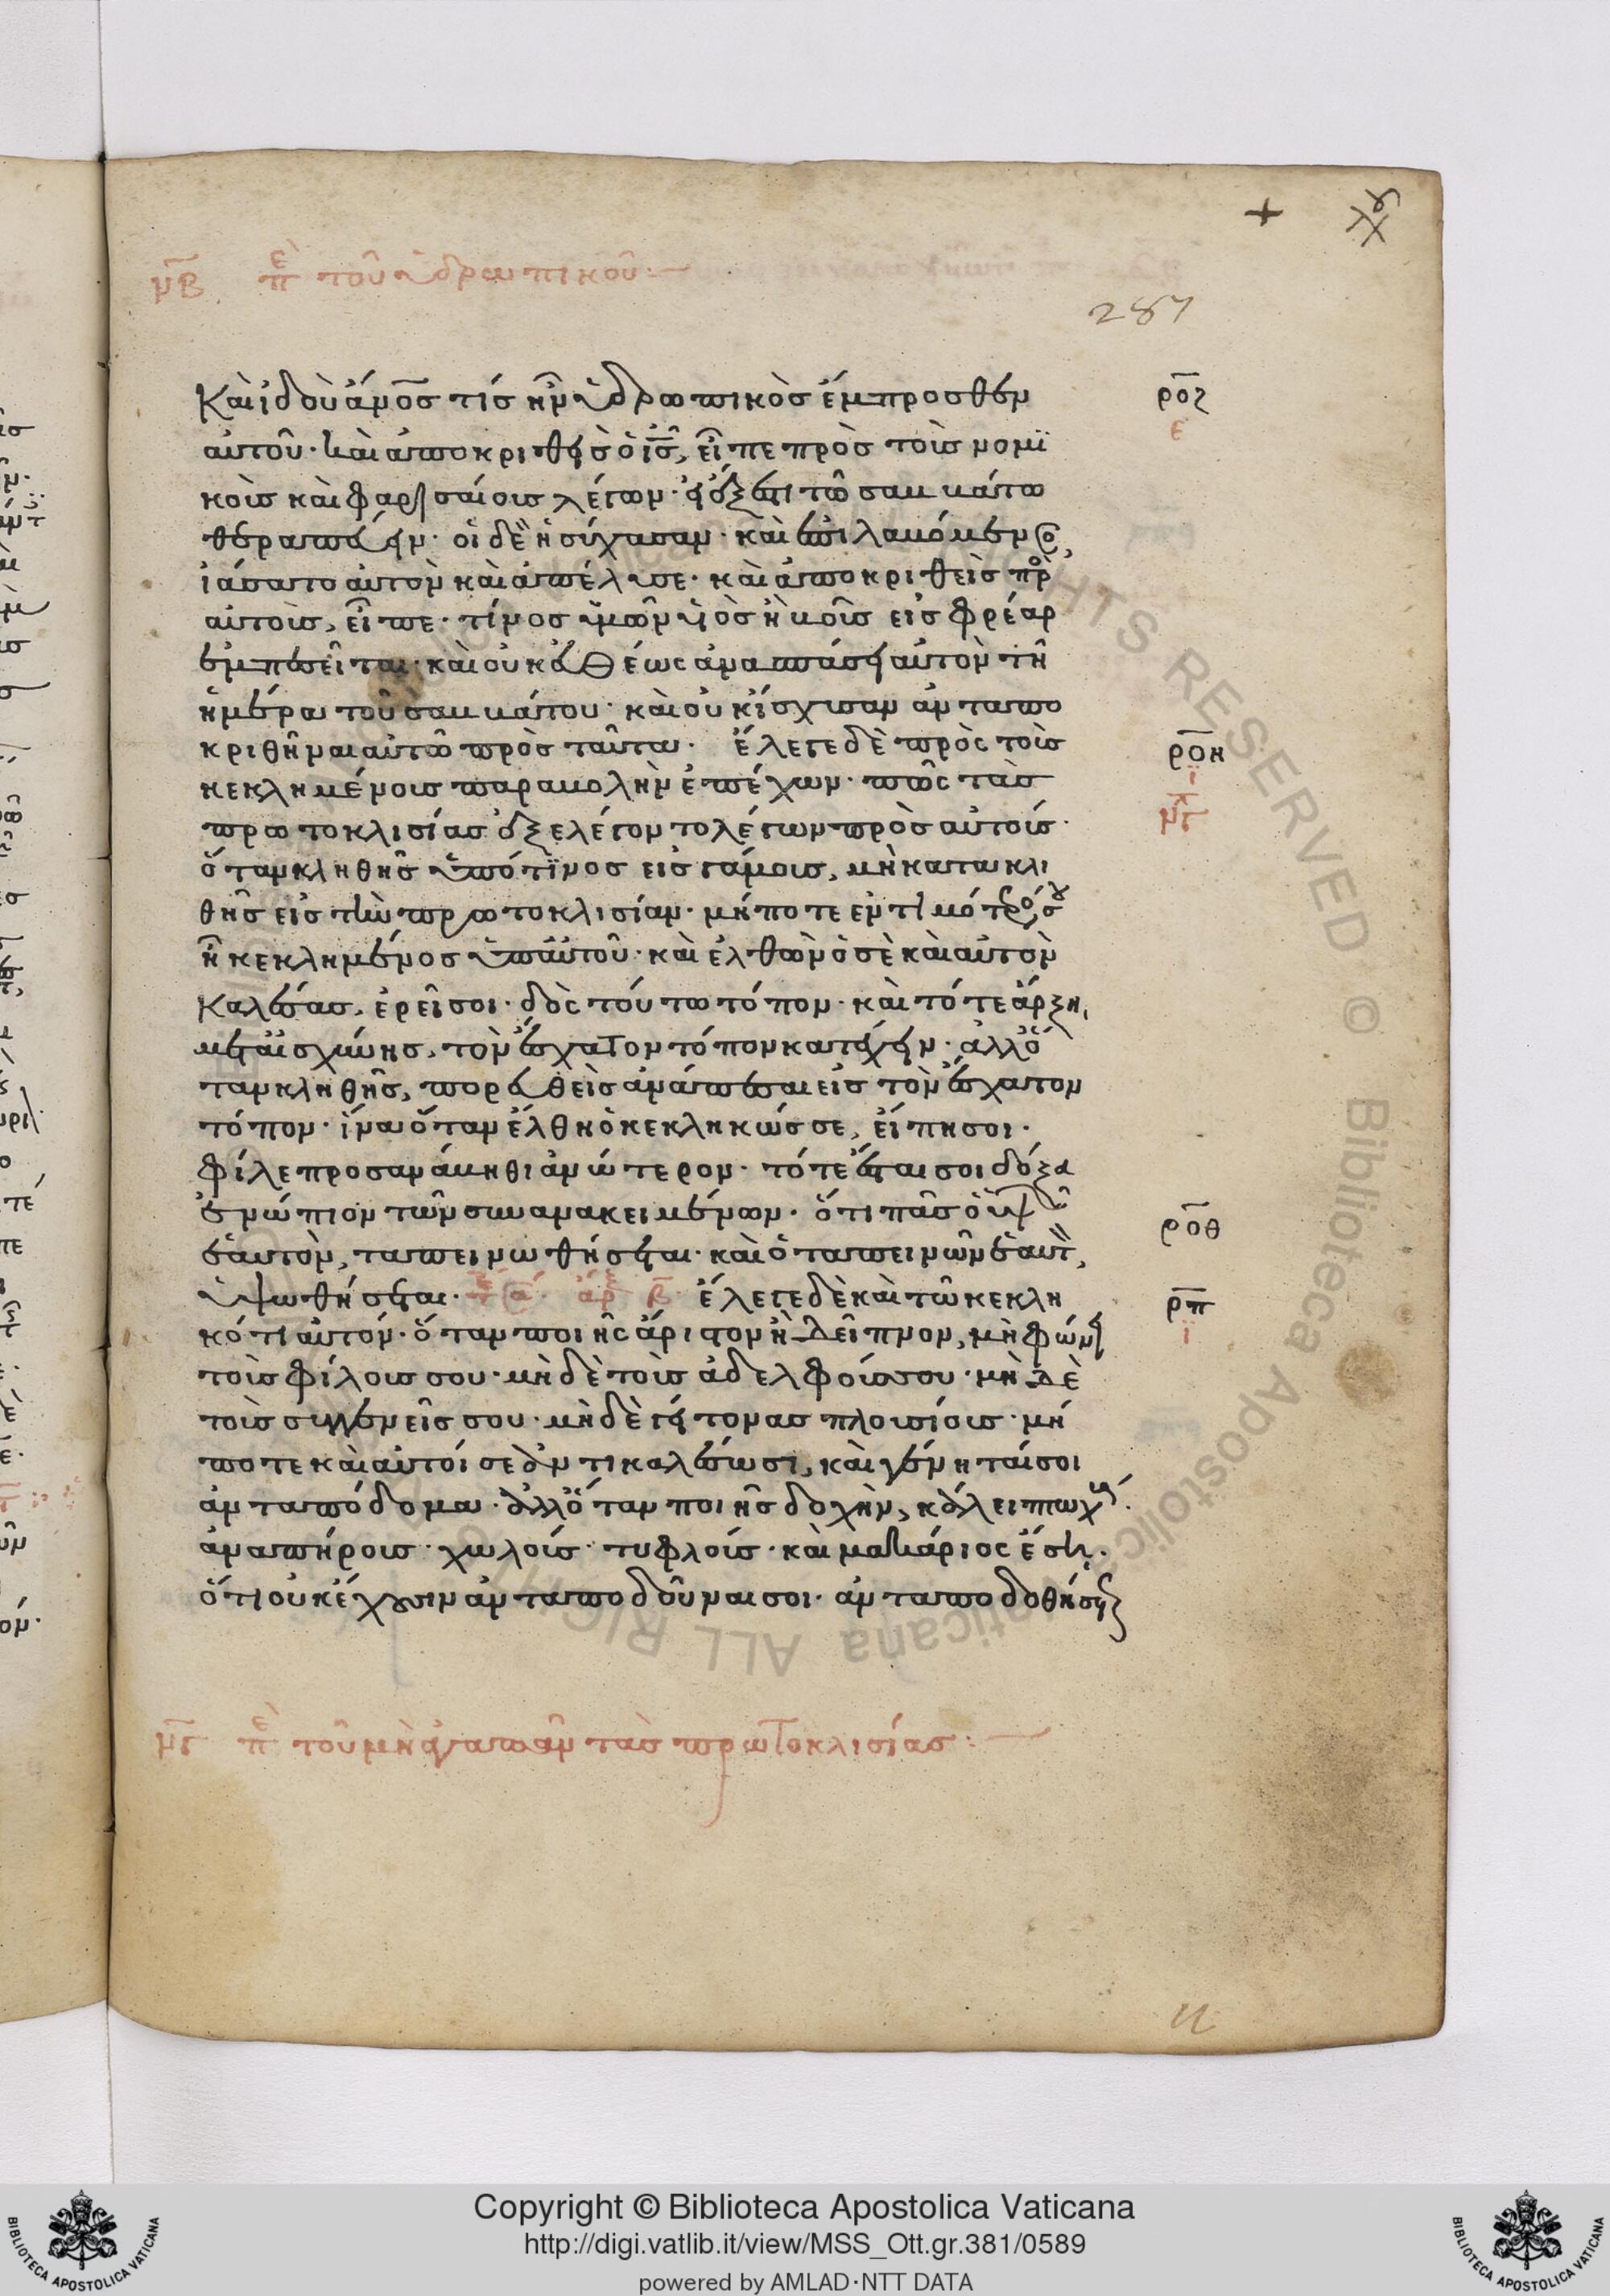 +
μβ̅ πε̅ τοῦ ὑδρωπικοῦ:—
287
Καὶ ἰδοὺ ἄνο̅σ τίσ ἦν ὑδρωπικὸσ ἔμπροσθεν
ρο̅ζ
ε
αὐτοῦ· καὶ ἀποκριθεὶσ ὁ ι̅σ̅, εἶπε πρὸσ τοὺσ νομϊ
κοὺσ καὶ φαρισαίουσ λέγων· εἰ ἔξεστι τῶ σαββάτω
θεραπεύειν· οἱ δὲ ἡσύχασαν· καὶ ἐπιλαβόμενοσ
ἰάσατο αὐτὸν καὶ ἀπέλυσε· καὶ ἀποκριθεὶσ πρὸ
αὐτοὺσ, εἶπε· τίνοσ ὑμῶν υἱὸσ ἢ βοῦσ εἰσ φρέαρ
ἐμπεσεῖται· καὶ οὐκ εὐθέωσ ἀνασπάσει αὐτὸν τῆ
ἡμέρα τοῦ σαββάτου· καὶ οὐκ ἴσχυσαν ἀνταπο
κριθῆναι αὐτῶ πρὸσ ταῦτα· ἔλεγε δὲ πρὸσ τοὺσ
ρο̅η
ϊ
κεκλημένουσ παραβολὴν ἐπέχων· πῶσ τὰσ
μγ̅
πρωτοκλισίασ ἐξελέγοντο λέγων πρὸσ αὐτούσ·
ὅταν κληθῆσ ὑπό τϊνοσ εἰσ γάμουσ, μὴ κατακλι
θῆσ εἰσ τὴν πρωτοκλισίαν· μήποτε ἐντιμότερόσ σου
ἦ κεκλημένοσ ὑπ' αὐτοῦ· καὶ ἐλθὼν ὁ σὲ καὶ αὐτὸν
καλέσασ, ἐρεῖ σοι· δὸσ τούτω τόπον· καὶ τότε ἄρξη
μετ' αἰσχύνησ, τὸν ἔσχατον τόπον κατέχειν· ἀλλ' ὅ
ταν κληθῆσ, πορευθεὶσ ἀνάπεσαι εἰσ τὸν ἔσχατον
τόπον· ἵνα ὅταν ἔλθη ὁ κεκληκώσ σε, εἴπη σοι·
φίλε προσανάβηθι ἀνώτερον· τότε ἔσται σοι δόξα
ἐνώπιον τῶν συνανακειμένων· ὅτι πᾶσ ὁ ὑψῶ
ρο̅θ
ἑαυτὸν, ταπεινωθήσεται· καὶ ὁ ταπεινῶν ἑαυτ,
ὑψωθήσεται· ἔλεγε δὲ καὶ τῶ κεκλη
ρπ̅
ϊ
κότι αὐτόν· ὅταν ποιῆσ ἄριστον ἢ δεῖπνον, μὴ φώνει
τοὺσ φίλουσ σου· μὴ δὲ τοὺσ ἀδελφούσ σου· μὴ δὲ
τοὺσ συγγενεῖσ σου· μὴ δὲ γείτονασ πλουσίουσ· μή
ποτε καὶ αὐτοί σε ἀντικαλέσωσι, καὶ γένηταί σοι
ἀνταπόδομα· ἀλλ' ὅταν ποιῆσ δοχὴν, κάλει πτωχούσ·
ἀναπήρουσ· χωλούσ· τυφλούσ· καὶ μακάριοσ ἔση·
ὅτι οὐκ ἔχουσιν ἀνταποδοῦναι σοι· ἀνταποδοθήσεται
μγ̅ πε̅ τοῦ μὴ ἀγαπᾶν τὰσ πρωτοκλισίασ:—
Copyright © Biblioteca Apostolica Vaticana
http://digi.vatlib.it/view/MSS_Ott.gr.381/0589
powered by AMLAD·NTT DATA
BIBLIOTECA APOSTOLICA VATICANA
BIBLIOTECA APOSTOLICA VATICANA